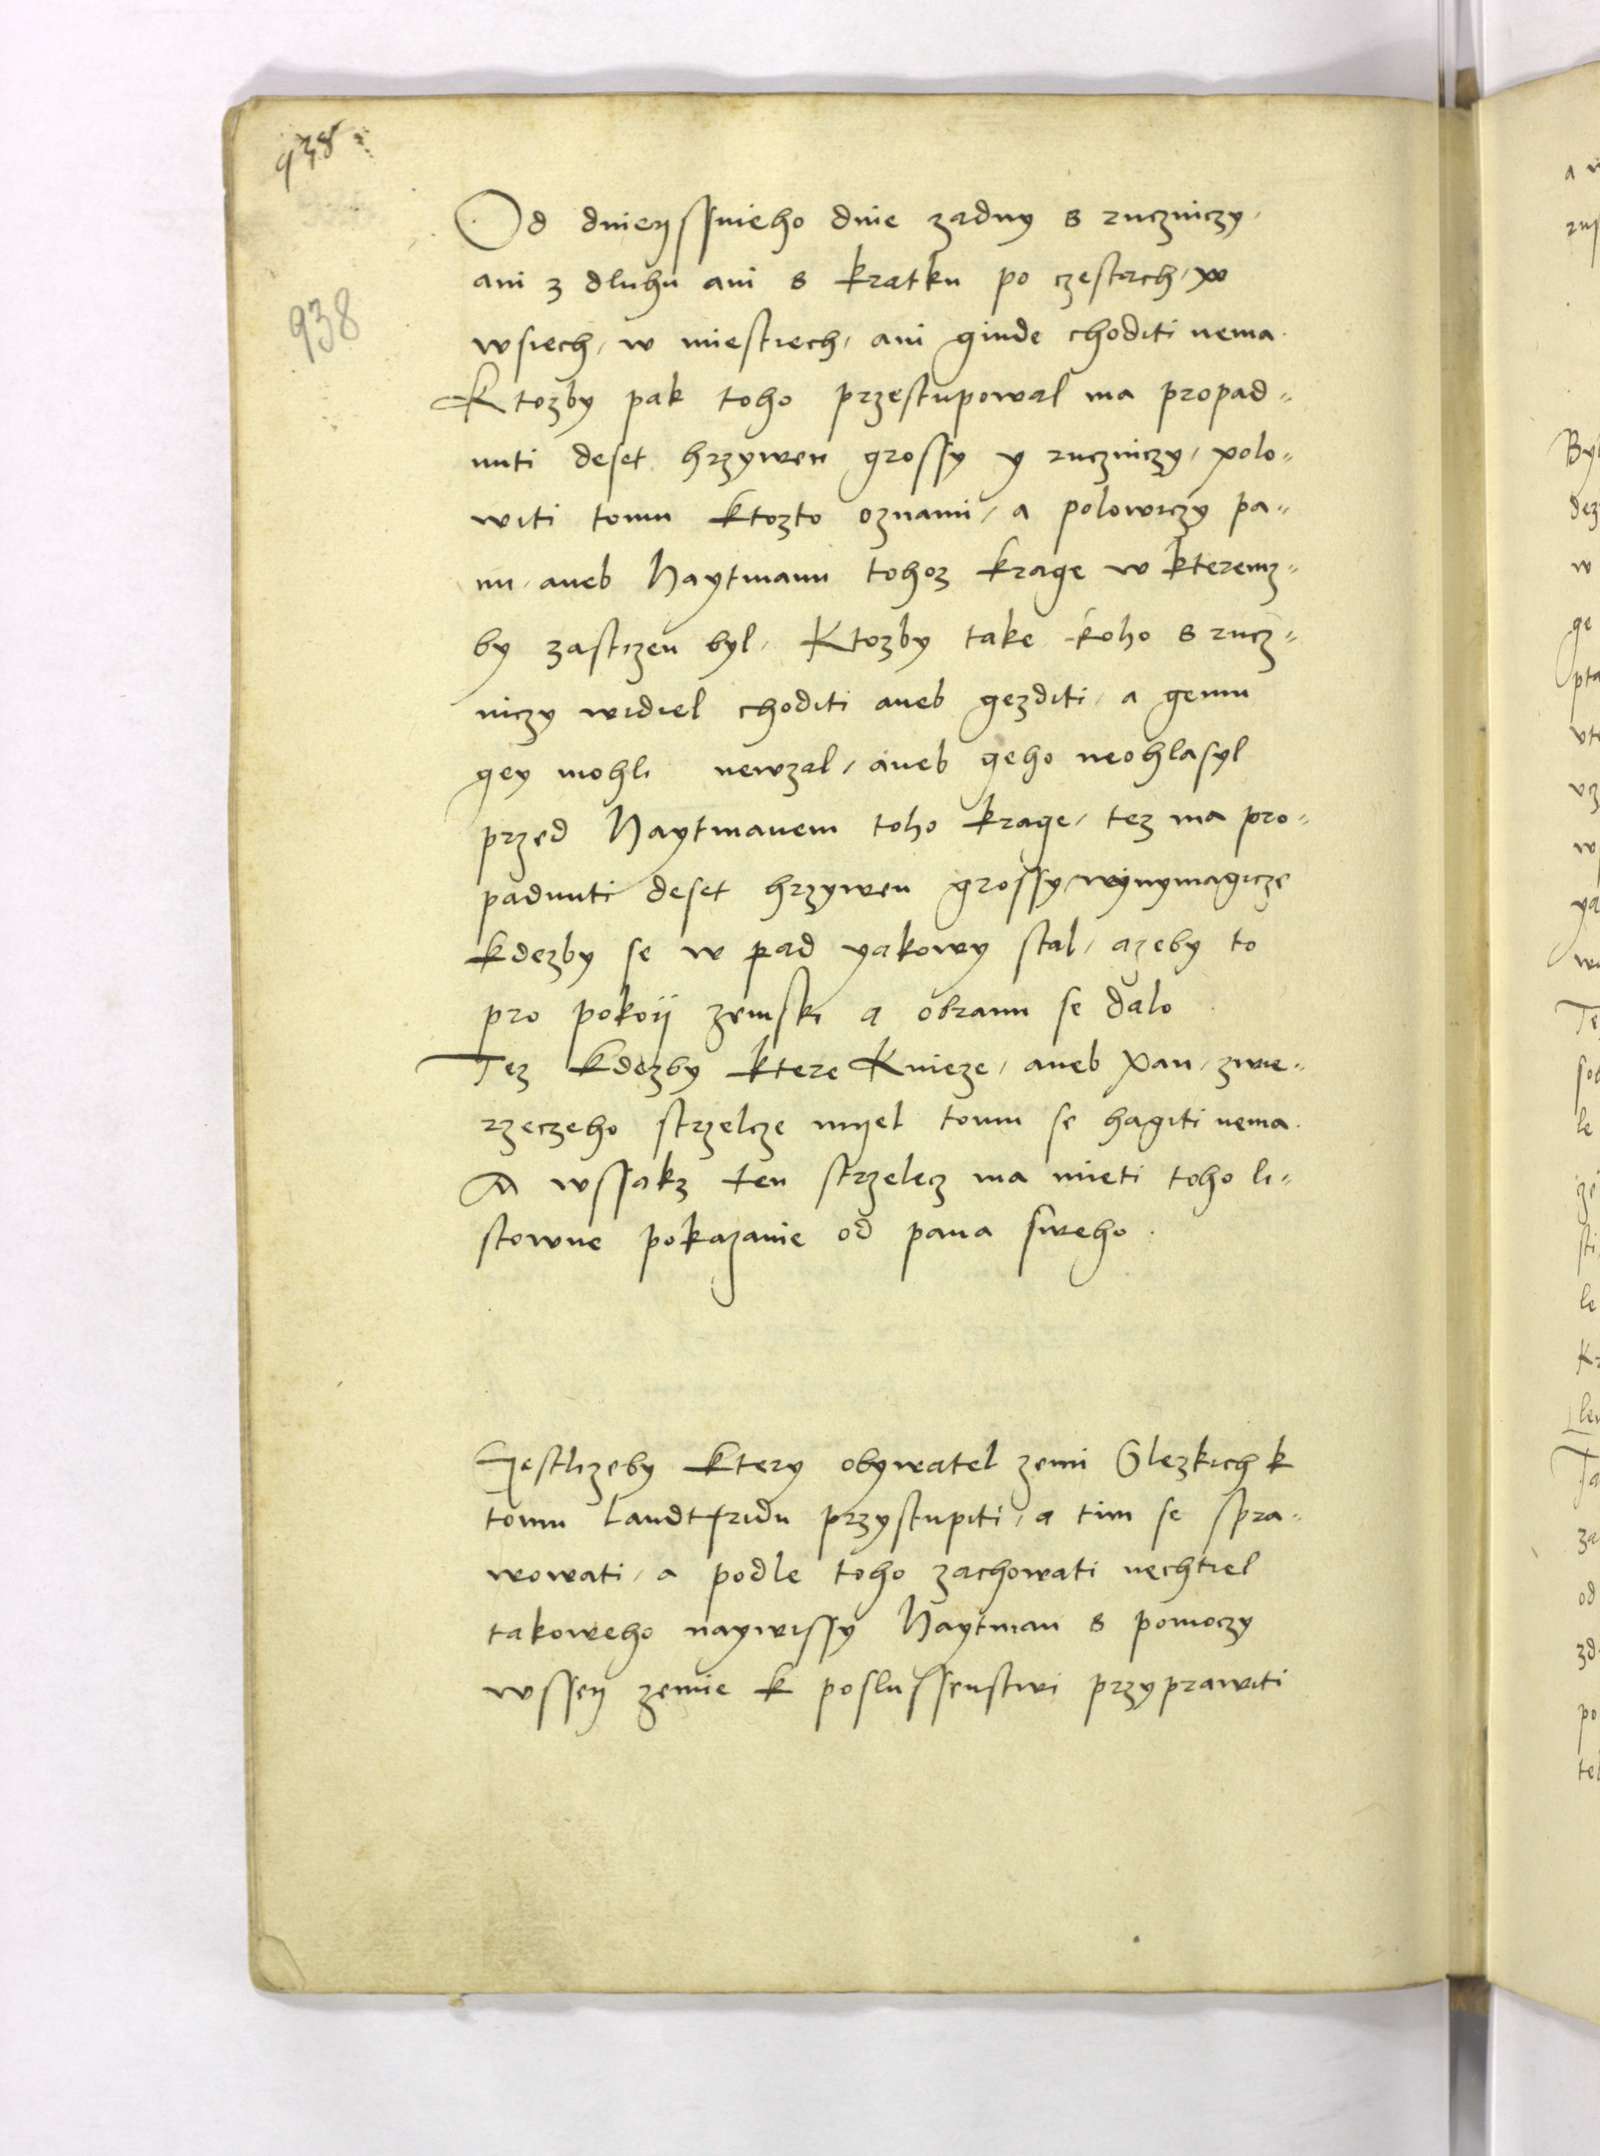 938
938
Od dnieyssnieho dnie zadny s ruczniczy,
ani z dluhu ani s kratku po czestach, w
wsiech, w miestiech, ani ginde choditi nema.
Ktozby pak toho przestupowal ma propad=
nuti deset hrzywen grossy y ruczniczy, polo=
witi tomu ktozto oznami, a polowiczy pa=
nu, aneb Haytmanu tohoz krage w kteremz=
by zastizen byl. Ktozby take koho s rucz=
niczy widiel choditi aneb gezditi, a gemu
gey mohli newzal, aneb geho neohlasyl
przed Haytmanem toho krage, tez ma pro=
padnuti deset hrzywen grossy, wynymagicze
kdezby se w pad yakowy stal, azeby to
pro pokoij zemski a obranu se dalo.
Tez kdezby ktere Knieze, aneb Pan, zwie=
rzeczeho strzelcze mijel tomu se hagiti nema.
A wssakz ten strzelecz ma mieti toho li=
stowne pokazanie od pana sweho.
Gestlizeby ktery obywatel zemi Slezkich k
tomu Landtfridu przystupiti, a tim se spra=
wowati, a podle toho zachowati nechtiel
takoweho naywissy Haytman s pomoczy
wssey zemie k poslussenstwi przyprawiti